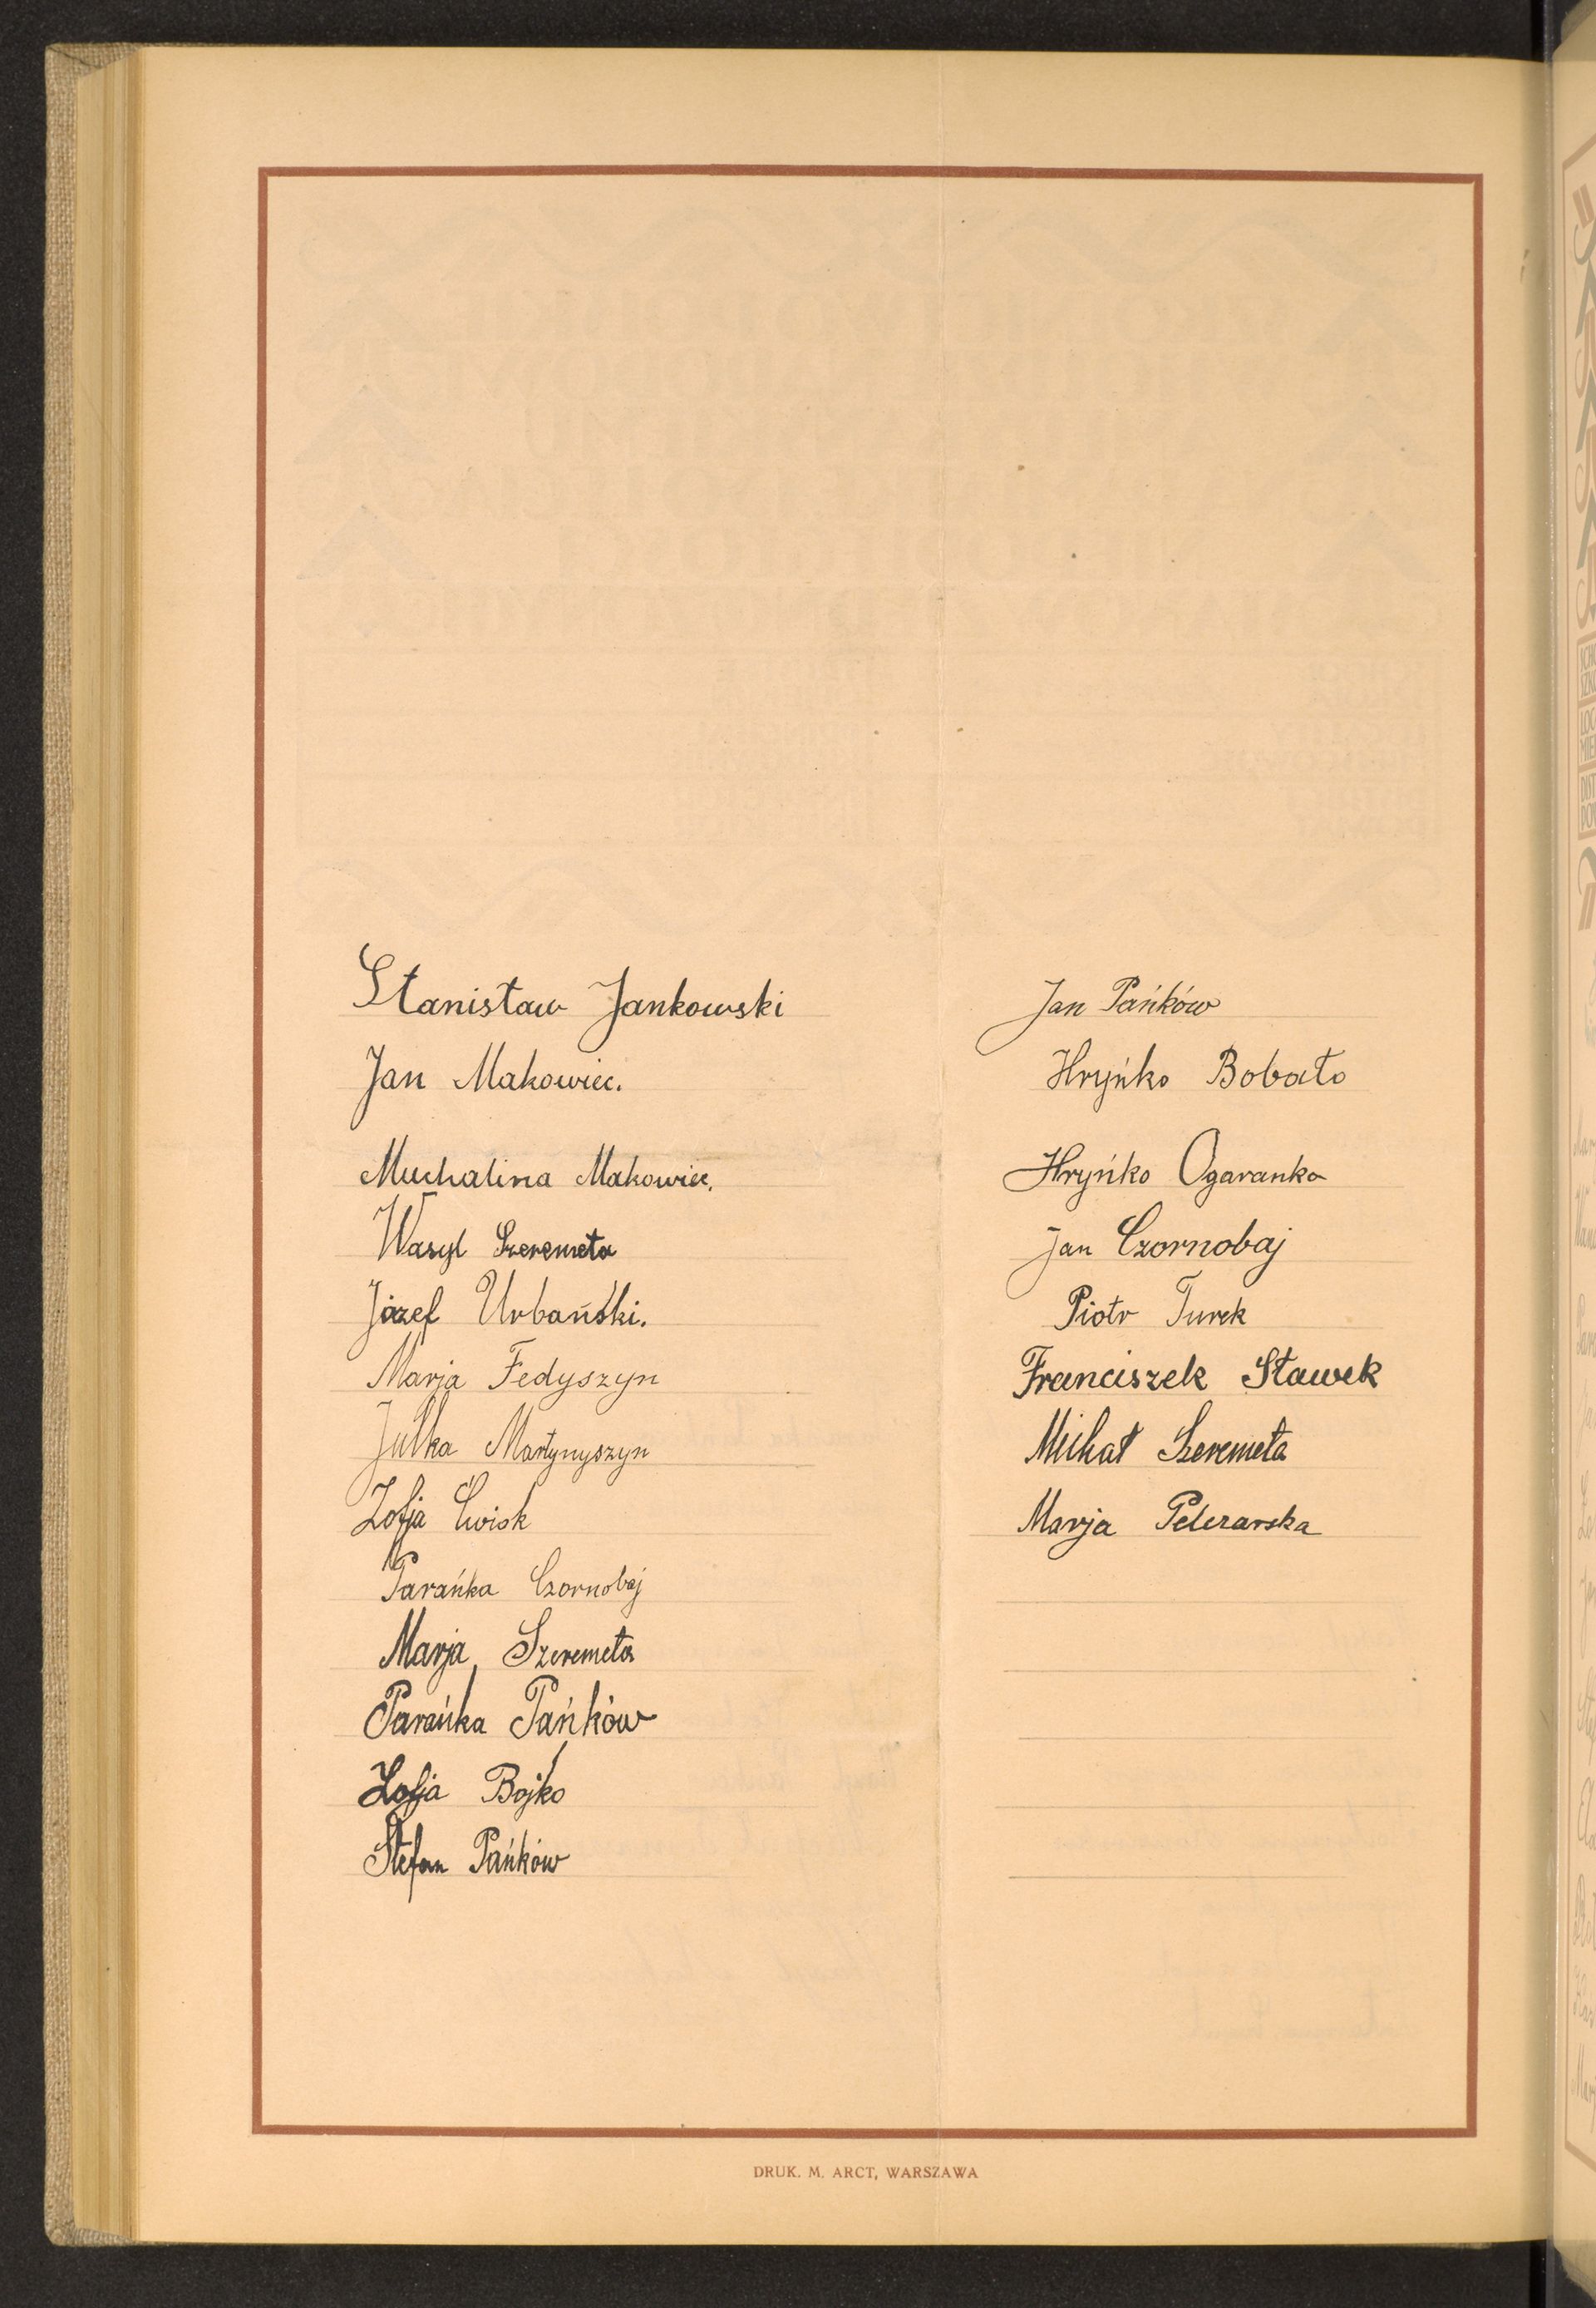 Stanisław Jankowski
Jan Makowiec.
Muchalina Makowiec.
Wasyl Szeremeta
Józef Urbański.
Marja Fedyszyn
Julka Martynyszyn
Zofja Ćwiok
Parańka Czornobaj
Marja Szeremeta
Parańka Pańków
Zofja Bojko
Stefan Pańków
Jan Pańków
Hryńko Bobało
Hryńko Ogaranko
Jan Czornobaj
Piotr Turek
Franciszek Sławek
Michał Szeremeta
Marja Pelczarska
DRUK. M. ARCT, WARSZAWA